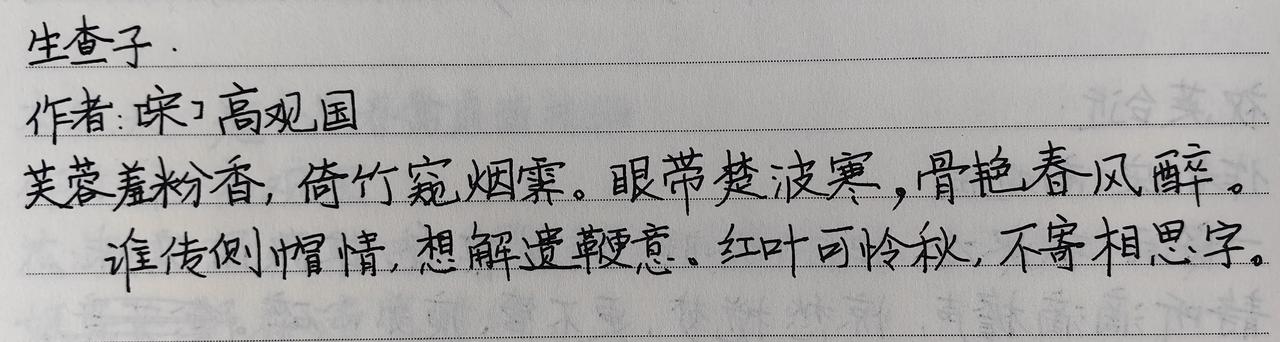 生查子.
作者:[宋]高观国
芙蓉羞粉香,倚竹窥烟霁。眼带楚波寒,骨艳春风醉。
谁传侧帽情,想解遗鞭意。红叶可怜秋,不寄相思字。